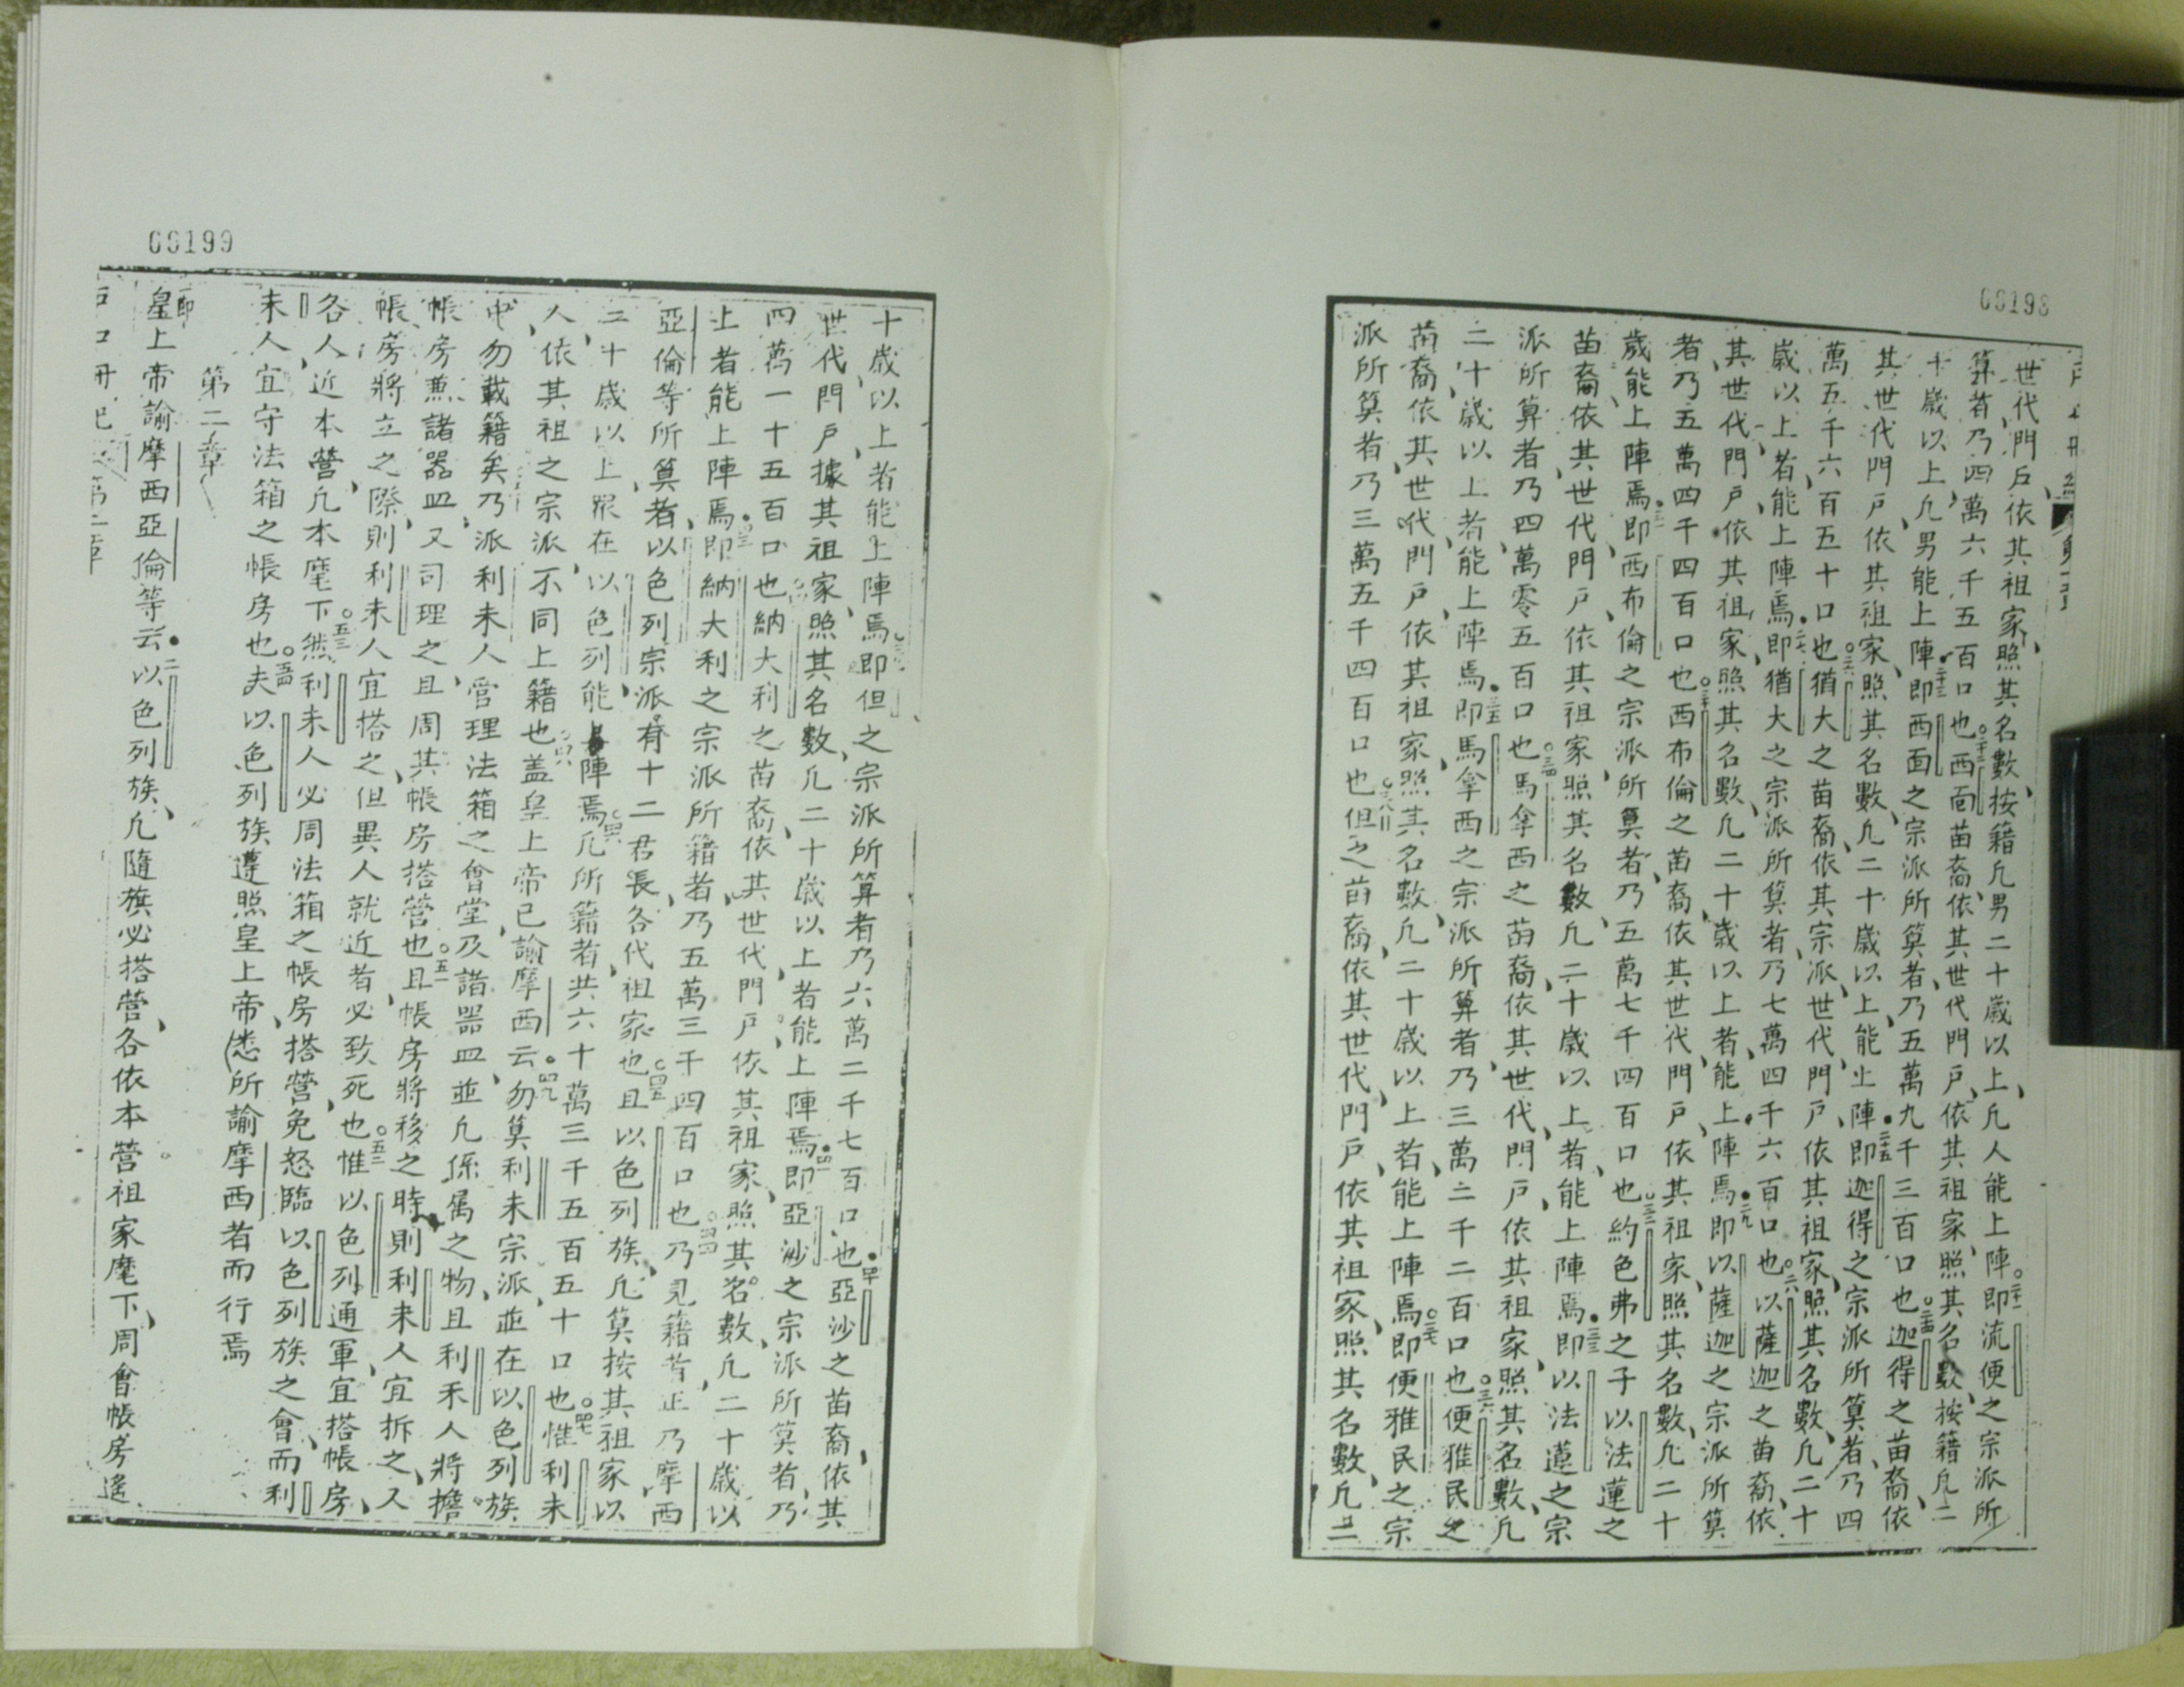 00198
世代門戶依其祖家照其名數按籍凢男二十歲以上凢人能上陣即流便之宗派所
算者乃四萬六千五百口也西面苗裔依其世代門戶依其祖家照其名數按籍凢二
十歲以上凢男能上陣即西面之宗派所算者乃五萬九千三百口也迦得之苗裔依
其世代門戶依其祖家照其名數凢二十歲以上能上陣即迦得之宗派所算者乃四
萬五千六百五十口也猶大之苗裔依其宗派世代門戶依其祖家照其名數凢二十
歲以上者能上陣焉即猶大之宗派所算者乃七萬四千六百口也以薩迦之苗裔依
其世代門戶依其祖家照其名數凢二十歲以上者能上陣焉即以薩迦之宗派所算
者乃五萬四千四百口也西布倫之苗裔依其世代門戶依其祖家照其名數凢二十
歲能上陣焉即西布倫之宗派所算者乃五萬七千四百口也約色弗之子以法蓮之
苗裔依其世代門戶依其祖家照其名數凢二十歲以上者能上陣焉即以法蓮之宗
派所算者乃四萬零五百口也馬拿西之苗裔依其世代門戶依其祖家照其名數凢
二十歲以上者能上陣焉即馬拿西之宗派所算者乃三萬二千二百口也便雅民之
苗裔依其世代門戶依其祖家照其名數凢二十歲以上者能上陣焉即便雅民之宗
派所算者乃三萬五千四百口也但之苗裔依其世代門戶依其祖家照其名數凢二
00199
十歲以上者能上陣焉即但之宗派所算者乃六萬二千七百口也亞沙之苗裔依其
世代門戶據其祖家照其名數凢二十歲以上者能上陣焉即亞沙之宗派所算者乃
四萬一十五百口也納大利之苗裔依其世代門戶依其祖家照其名數凢二十歲以
上者能上陣焉即納大利之宗派所籍者乃五萬三千四百口也乃見籍者正乃摩西
亞倫等所算者以色列宗派有十二君長各代祖家也且以色列族凢算按其祖家以
二十歲以上眾在以色列能上陣焉凢所籍者共六十萬三千五百五十口也惟利未
人依其祖之宗派不同上籍也盖皇上帝已諭摩西云勿算利未宗派並在以色列族
中勿載籍矣乃派利未人管理法箱之會堂及諸器皿並凢係属之物且利未人將擔
帳房兼諸器皿又司理之且周其帳房搭營也且帳房將移之時則利未人宜拆之又
帳房將立之際則利未人宜搭之但異人就近者必致死也惟以色列通軍宜搭帳房
各人近本營凢本麾下然利未人必周法箱之帳房搭營免怒臨以色列族之會而利
未人宜守法箱之帳房也夫以色列族遵照皇上帝悉所諭摩西者而行焉
第二章
皇上帝諭摩西亞倫等云以色列族凢隨旗必搭營各依本營祖家麾下周會帳房遙